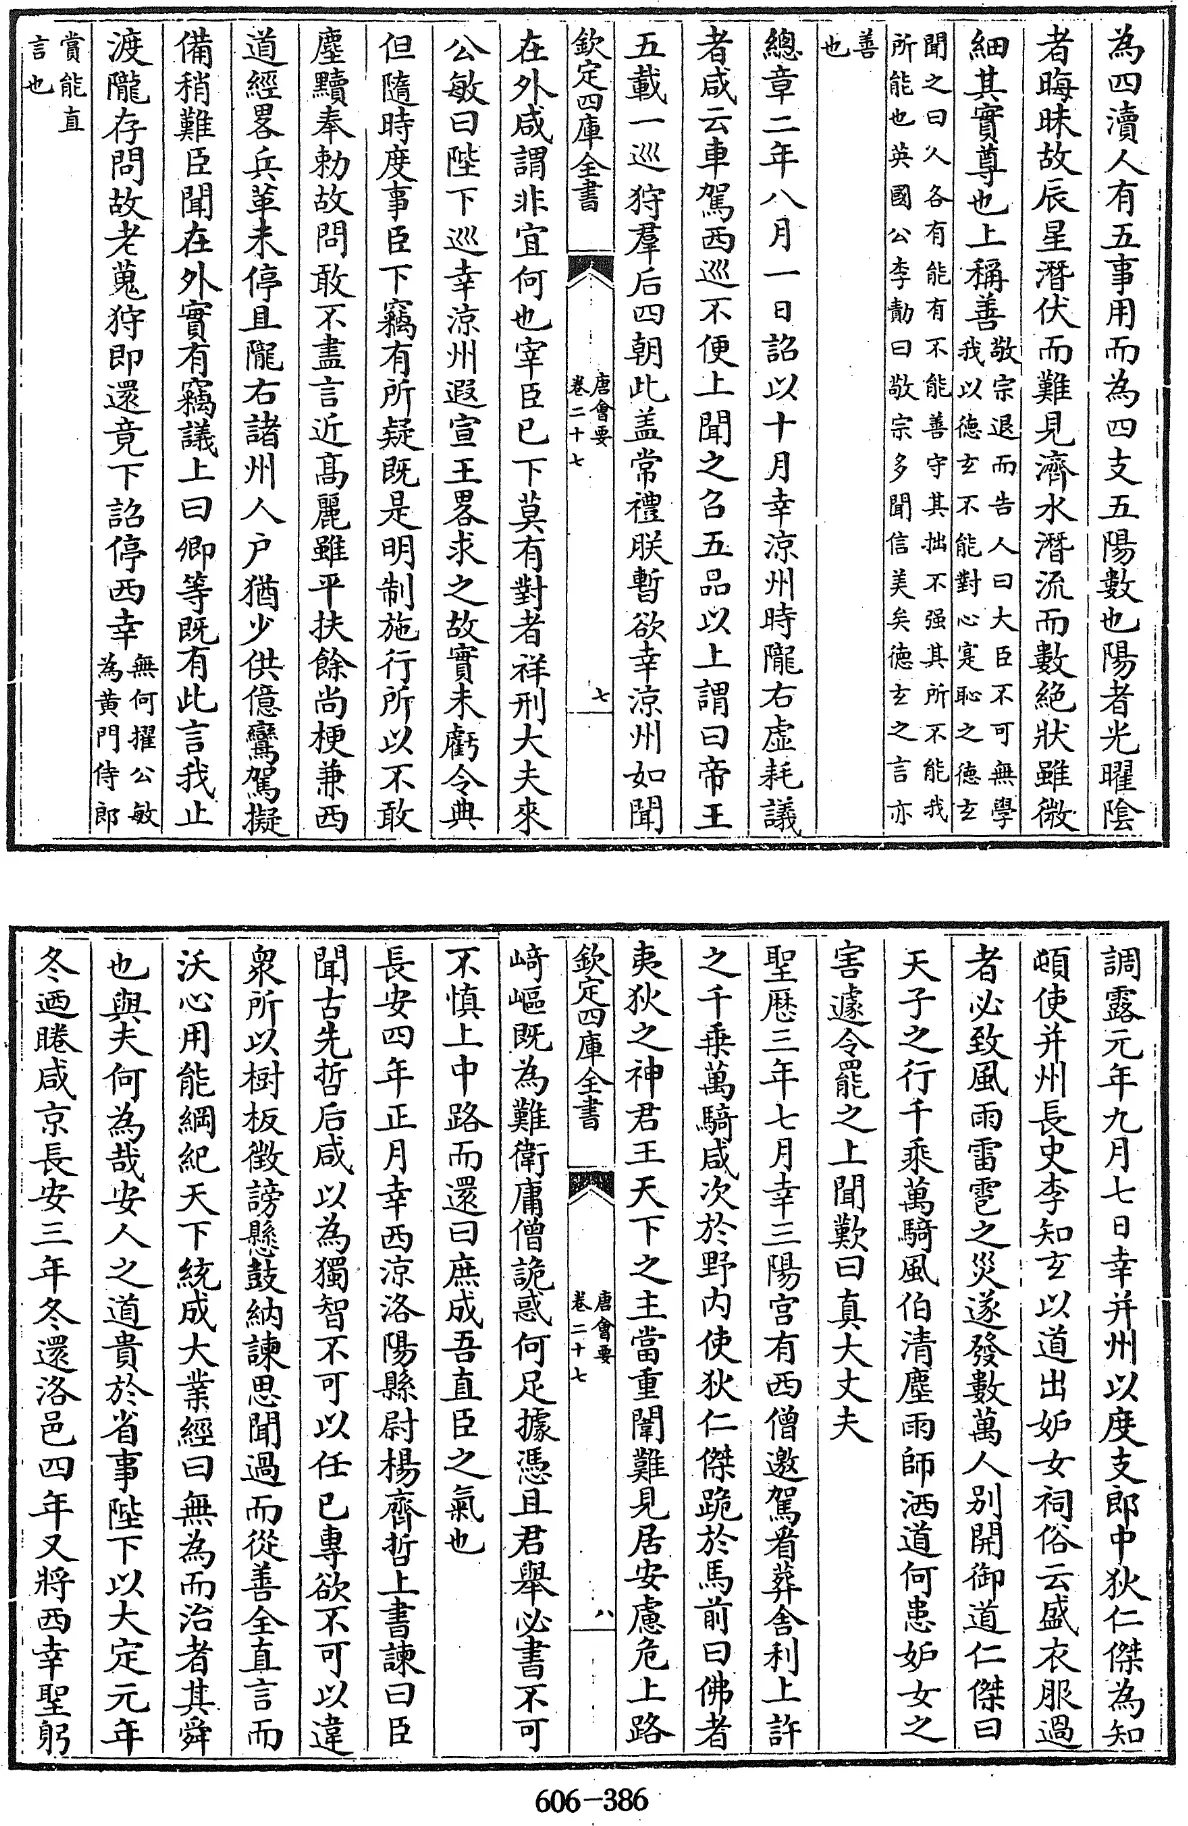 為四瀆人有五事用而為四支五陽數也陽者光曜陰
者晦昧故辰星潛伏而難見濟水潛流而數絕狀雖微
細其實尊也上稱善敬宗退而告人曰大臣不可無學
我以德玄不能對心寔恥之德玄
聞之曰人各有能有不能善守其拙不强其所不能我
所能也英國公李勣曰敬宗多聞信美矣德玄之言亦
善
也
總章二年八月一日詔以十月幸涼州時隴右虛耗議
者咸云車駕西巡不便上聞之召五品以上謂曰帝王
五載一巡狩羣后四朝此盖常禮朕暫欲幸涼州如聞
欽定四庫全書
唐會要
卷二十七
七
在外咸謂非宜何也宰臣已下莫有對者祥刑大夫來
公敏曰陛下巡幸涼州遐宣王畧求之故實未虧令典
但隨時度事臣下竊有所疑既是明制施行所以不敢
塵黷奉勅故問敢不盡言近高麗雖平扶餘尚梗兼西
道經畧兵革未停且隴右諸州人户猶少供億鸞駕擬
備稍難臣聞在外實有竊議上曰卿等既有此言我止
渡隴存問故老蒐狩即還竟下詔停西幸無何擢公敏
為黄門侍郎
賞能直
言也
調露元年九月七日幸并州以度支郎中狄仁傑為知
頓使并州長史李知玄以道出妒女祠俗云盛衣服過
者必致風雨雷雹之災遂發數萬人别開御道仁傑曰
天子之行千乘萬騎風伯清塵雨師洒道何患妒女之
害遽令罷之上聞歎曰真大丈夫
聖歴三年七月幸三陽宫有西僧邀駕看葬舍利上許
之千乗萬騎咸次於野内使狄仁傑跪於馬前曰佛者
夷狄之神君王天下之主當重闈難見居安慮危上路
欽定四庫全書
唐會要
卷二十七
八
﨑嶇既為難衛庸僧詭惑何足據憑且君舉必書不可
不慎上中路而還曰庶成吾直臣之氣也
長安四年正月幸西凉洛陽縣尉楊齊哲上書諫曰臣
聞古先哲后咸以為獨智不可以任已專欲不可以違
衆所以樹板徵謗懸鼓納諫思聞過而從善全直言而
沃心用能綱紀天下統成大業經曰無為而治者其舜
也與夫何為哉安人之道貴於省事陛下以大定元年
冬迺睠咸京長安三年冬還洛邑四年又將西幸聖躬
606-386